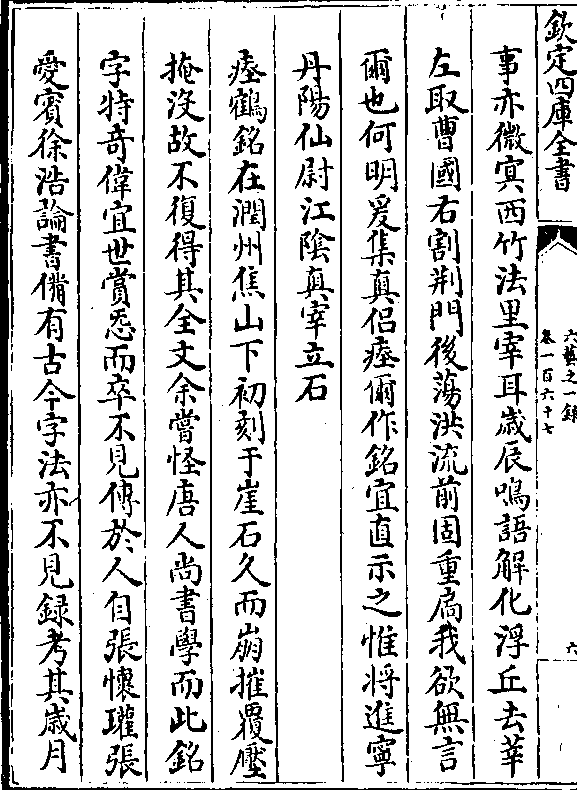 欽定四庫全書
六藝之一録
卷一百六十七
六
事亦微㝠西竹法里宰耳歳辰鳴語解化浮丘去莘
左取曹國右割荆門後蕩洪流前固重扃我欲無言
爾也何明爰集真侣瘞爾作銘宜直示之惟将進寧
丹陽仙尉江隂真宰立石
瘞鶴銘在潤州焦山下初刻于崖石久而崩摧覆壓
掩沒故不復得其全文余嘗怪唐人尚書學而此銘
字特竒偉宜世賞㤅而卒不見傳於人自張懷瓘張
愛賓徐浩論書備有古今字法亦不見録考其歳月